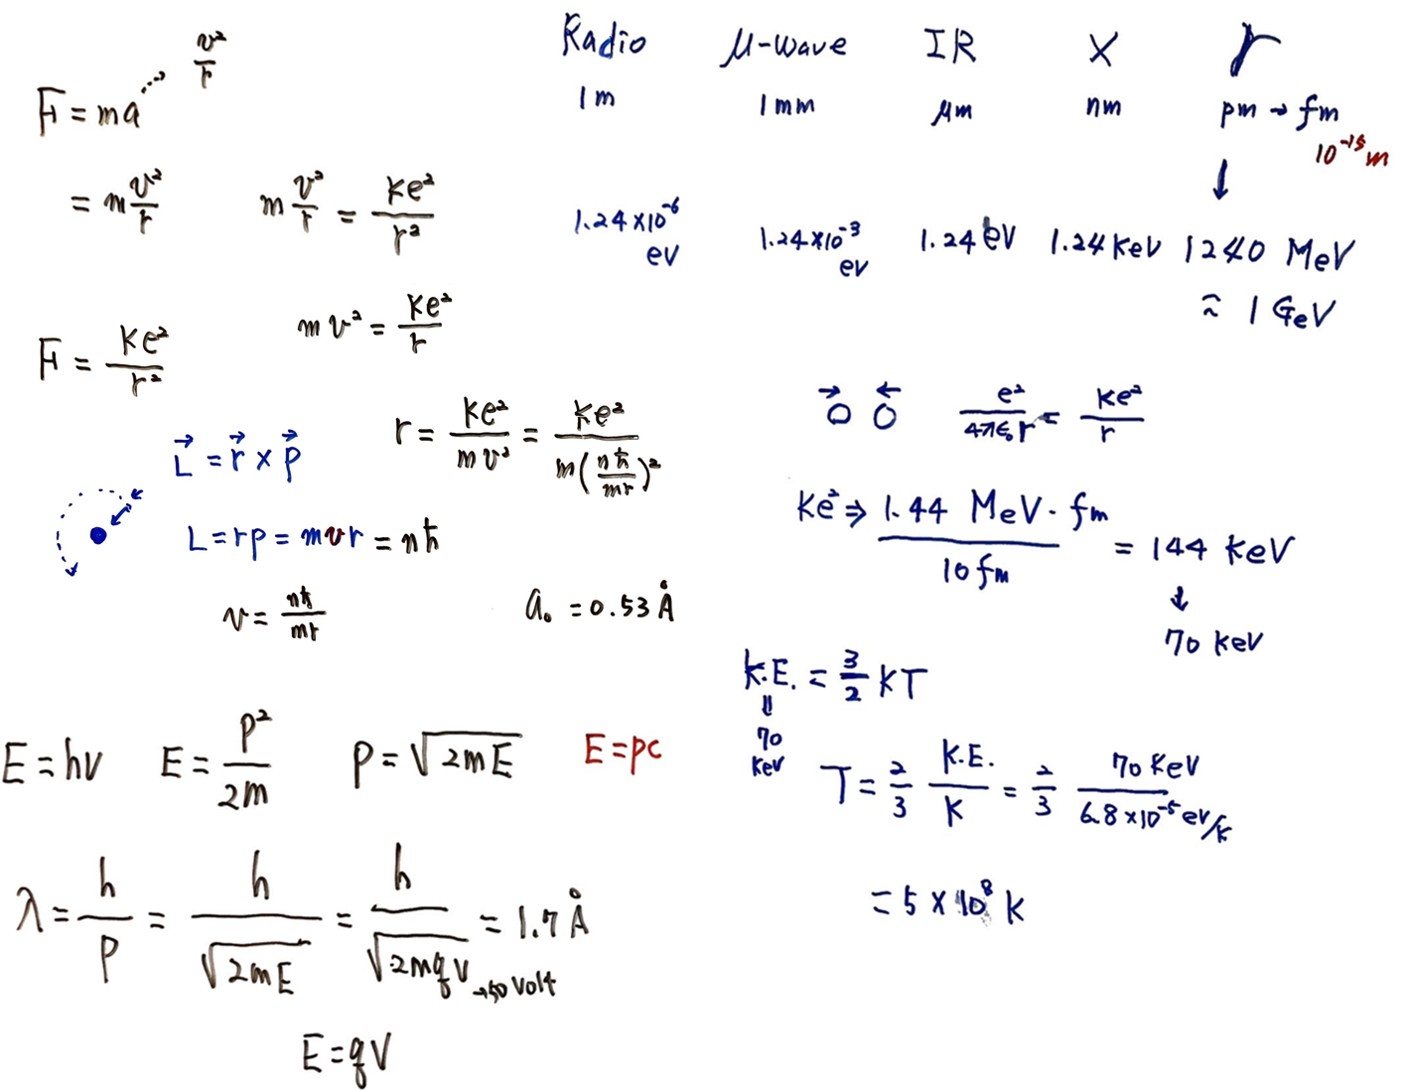 F = ma → v²/r
= m v²/r
m v²/r = ke²/r²
F = ke²/r²
mv² = ke²/r
r = ke²/mv² = ke²/m(nħ/mr)²
L⃗ = r⃗ × p⃗
L = rp = mvr = nħ
v = nħ/mr
a₀ = 0.53 Å
E = hν E = p²/2m p = √2mE E = pc
λ = h/p = h/√2mE = h/√2mqV = 1.7 Å
→50 Volt
E = qV
Radio μ-wave IR X γ
1m 1mm μm nm pm → fm
10⁻¹⁵ m
↓
1.24×10⁻⁶ eV 1.24×10⁻³ eV 1.24 eV 1.24 KeV 1240 MeV
≈ 1 GeV
e²/4πε₀r = ke²/r
ke² ⇒ 1.44 MeV·fm/10 fm = 144 KeV
↓
70 KeV
K.E. = 3/2 kT
⇓
70 KeV
T = 2/3 K.E./K = 2/3 70 KeV/6.8×10⁻⁵ eV/K
= 5 × 10⁸ K